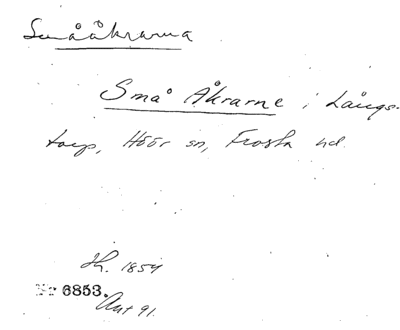 Smååkrarna
Små Åkrarne i Långs-
torp, Höör sn, Frosta hd.
Jh. 1854
Nr 6853.
Ant 91.